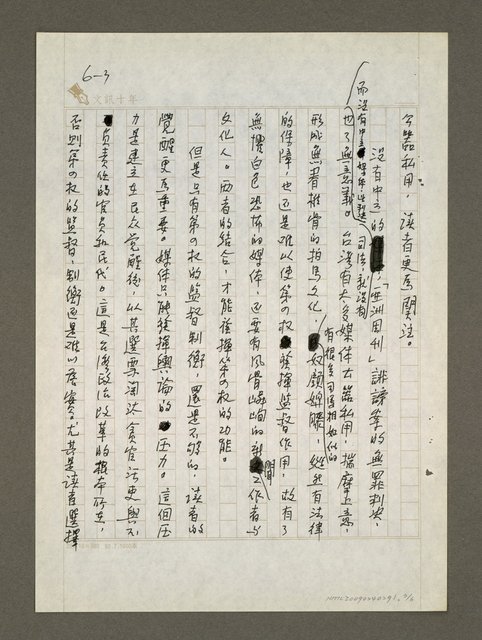 6-3
文訊十年
公器私用,讀者更應關注。
沒有中立的「亞洲週刊」誹謗案的無罪判決,
而沒有中立媒體、性判決
司法,就沒有
也了無意義。台灣有太多媒體公器私用,揣摩上意,
有很多司馬相如似的
形成無著推背的拍馬文化,奴顏婢膝,縱然有法律
的保障,也還是難以使第四權發揮監督作用,故有了
無懼白色恐怖的媒體,還要有風骨嶙峋的新聞工作者與
文化人。兩者的結合,才能發揮第四權的功能。
但是只有第四權的監督制衡,還是不夠的,讀者的
覺醒更為重要。媒體只能發揮輿論的壓力。這個壓
力是建立在民眾覺醒後,以其選票淘汰貪官污吏與不
負責任的官員和民代。這是台灣政治改革的根本所在,
否則第四權的監督,制衡還是難以落實。尤其是讀者選擇
NMTL20090240291 3/6